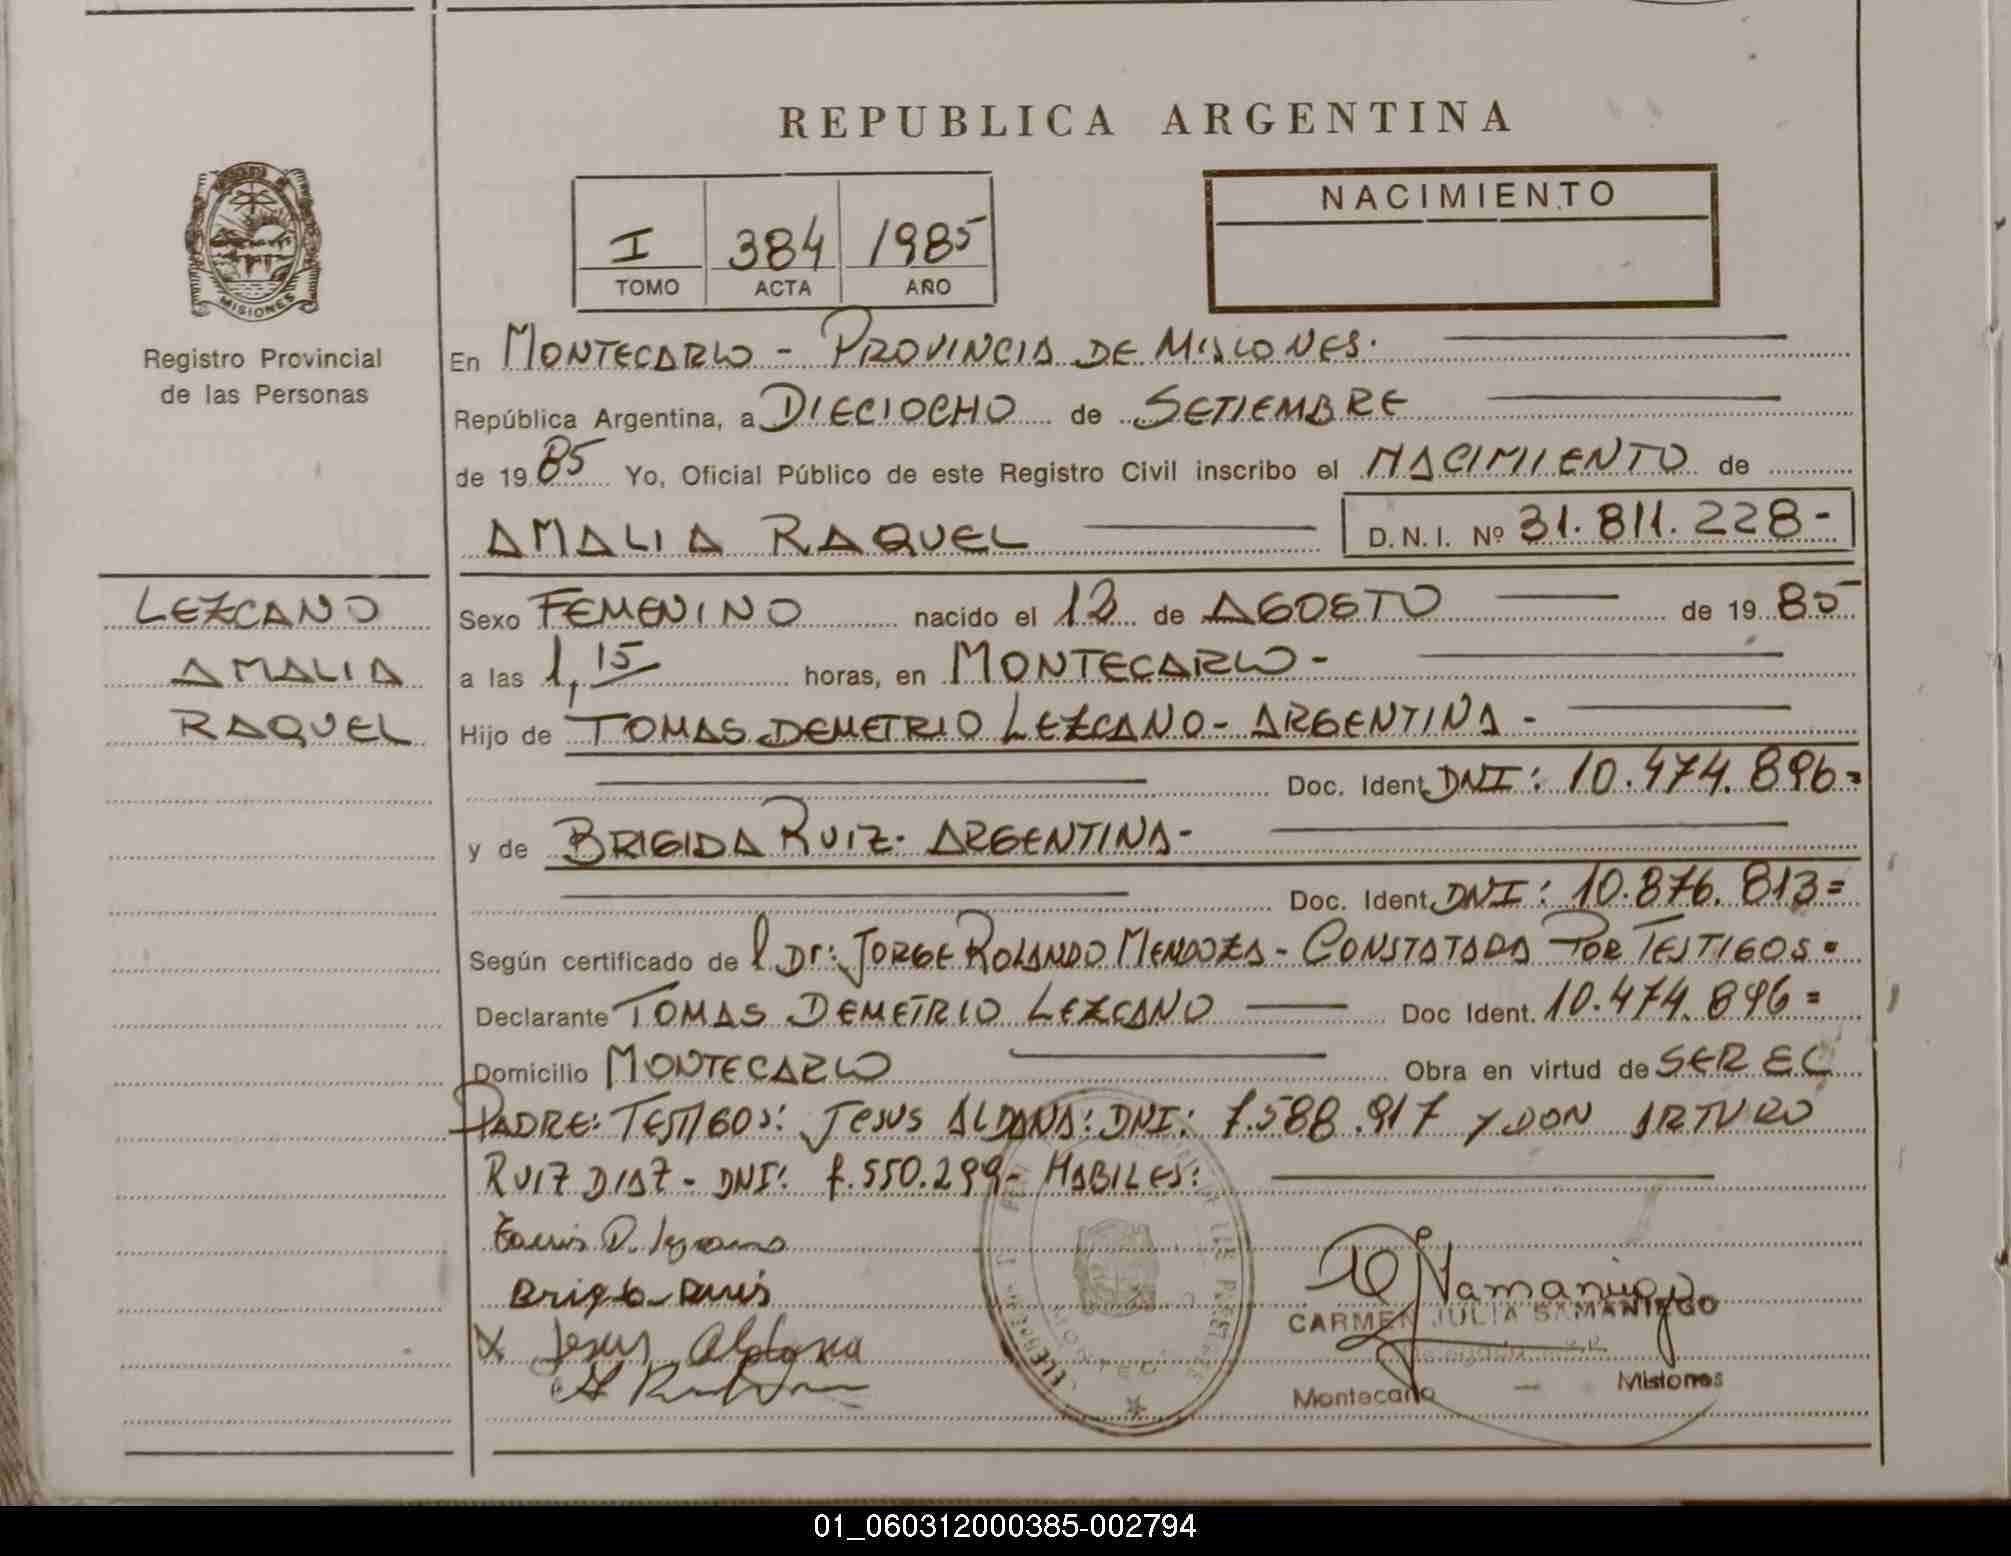 REPUBLICA ARGENTINA
NACIMIENTO
I 384 1985
TOMO ACTA AÑO
MISIONES
Registro Provincial
de las Personas
En MONTECARLO - PROVINCIA DE MISIONES.
República Argentina, a DIECIOCHO de SETIEMBRE
de 19 85 Yo, Oficial Público de este Registro Civil inscribo el NACIMIENTO de
AMALIA RAQUEL D.N.I. Nº 31.811.228-
LEZCANO
AMALIA
RAQUEL
Sexo FEMENINO nacido el de AGOSTO de 19 85
a las 1,15 horas, en MONTECARLO-
Hijo de TOMAS DEMETRIO LEZCANO - ARGENTINA -
Doc. Ident DNI: 10.474.896=
y de BRIGIDA RUIZ - ARGENTINA -
Doc. Ident DNI: 10.876.813=
Según certificado de l Dr: JORGE ROLANDO MENDOZA - CONSTATADA POR TESTIGOS =
Declarante TOMAS DEMETRIO LEZCANO Doc Ident. 10.474.896=
Domicilio MONTECARLO Obra en virtud de SER EL
PADRE: TESTIGOS: JESUS ALDANA: DNI: 7.588.917 Y DON ARTURO
RUIZ DIAZ - DNI: 7.550.299- HABILES:
Jesus Aldana
CARMEN JULIA SAMANIEGO
Montecarlo - Misiones
01_060312000385-002794